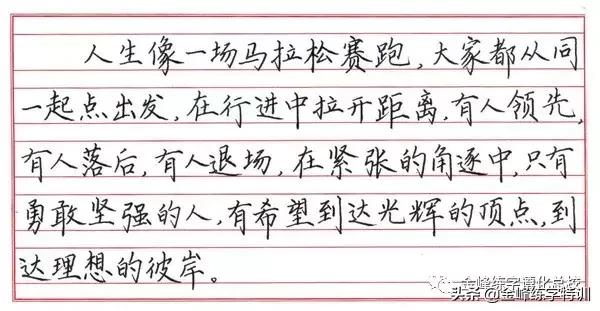 人生像一场马拉松赛跑,大家都从同
一起点出发,在行进中拉开距离,有人领先,
有人落后,有人退场,在紧张的角逐中,只有
勇敢坚强的人,有希望到达光辉的顶点,到
达理想的彼岸。
金峰练字遵化总校
头条@金峰练字特训